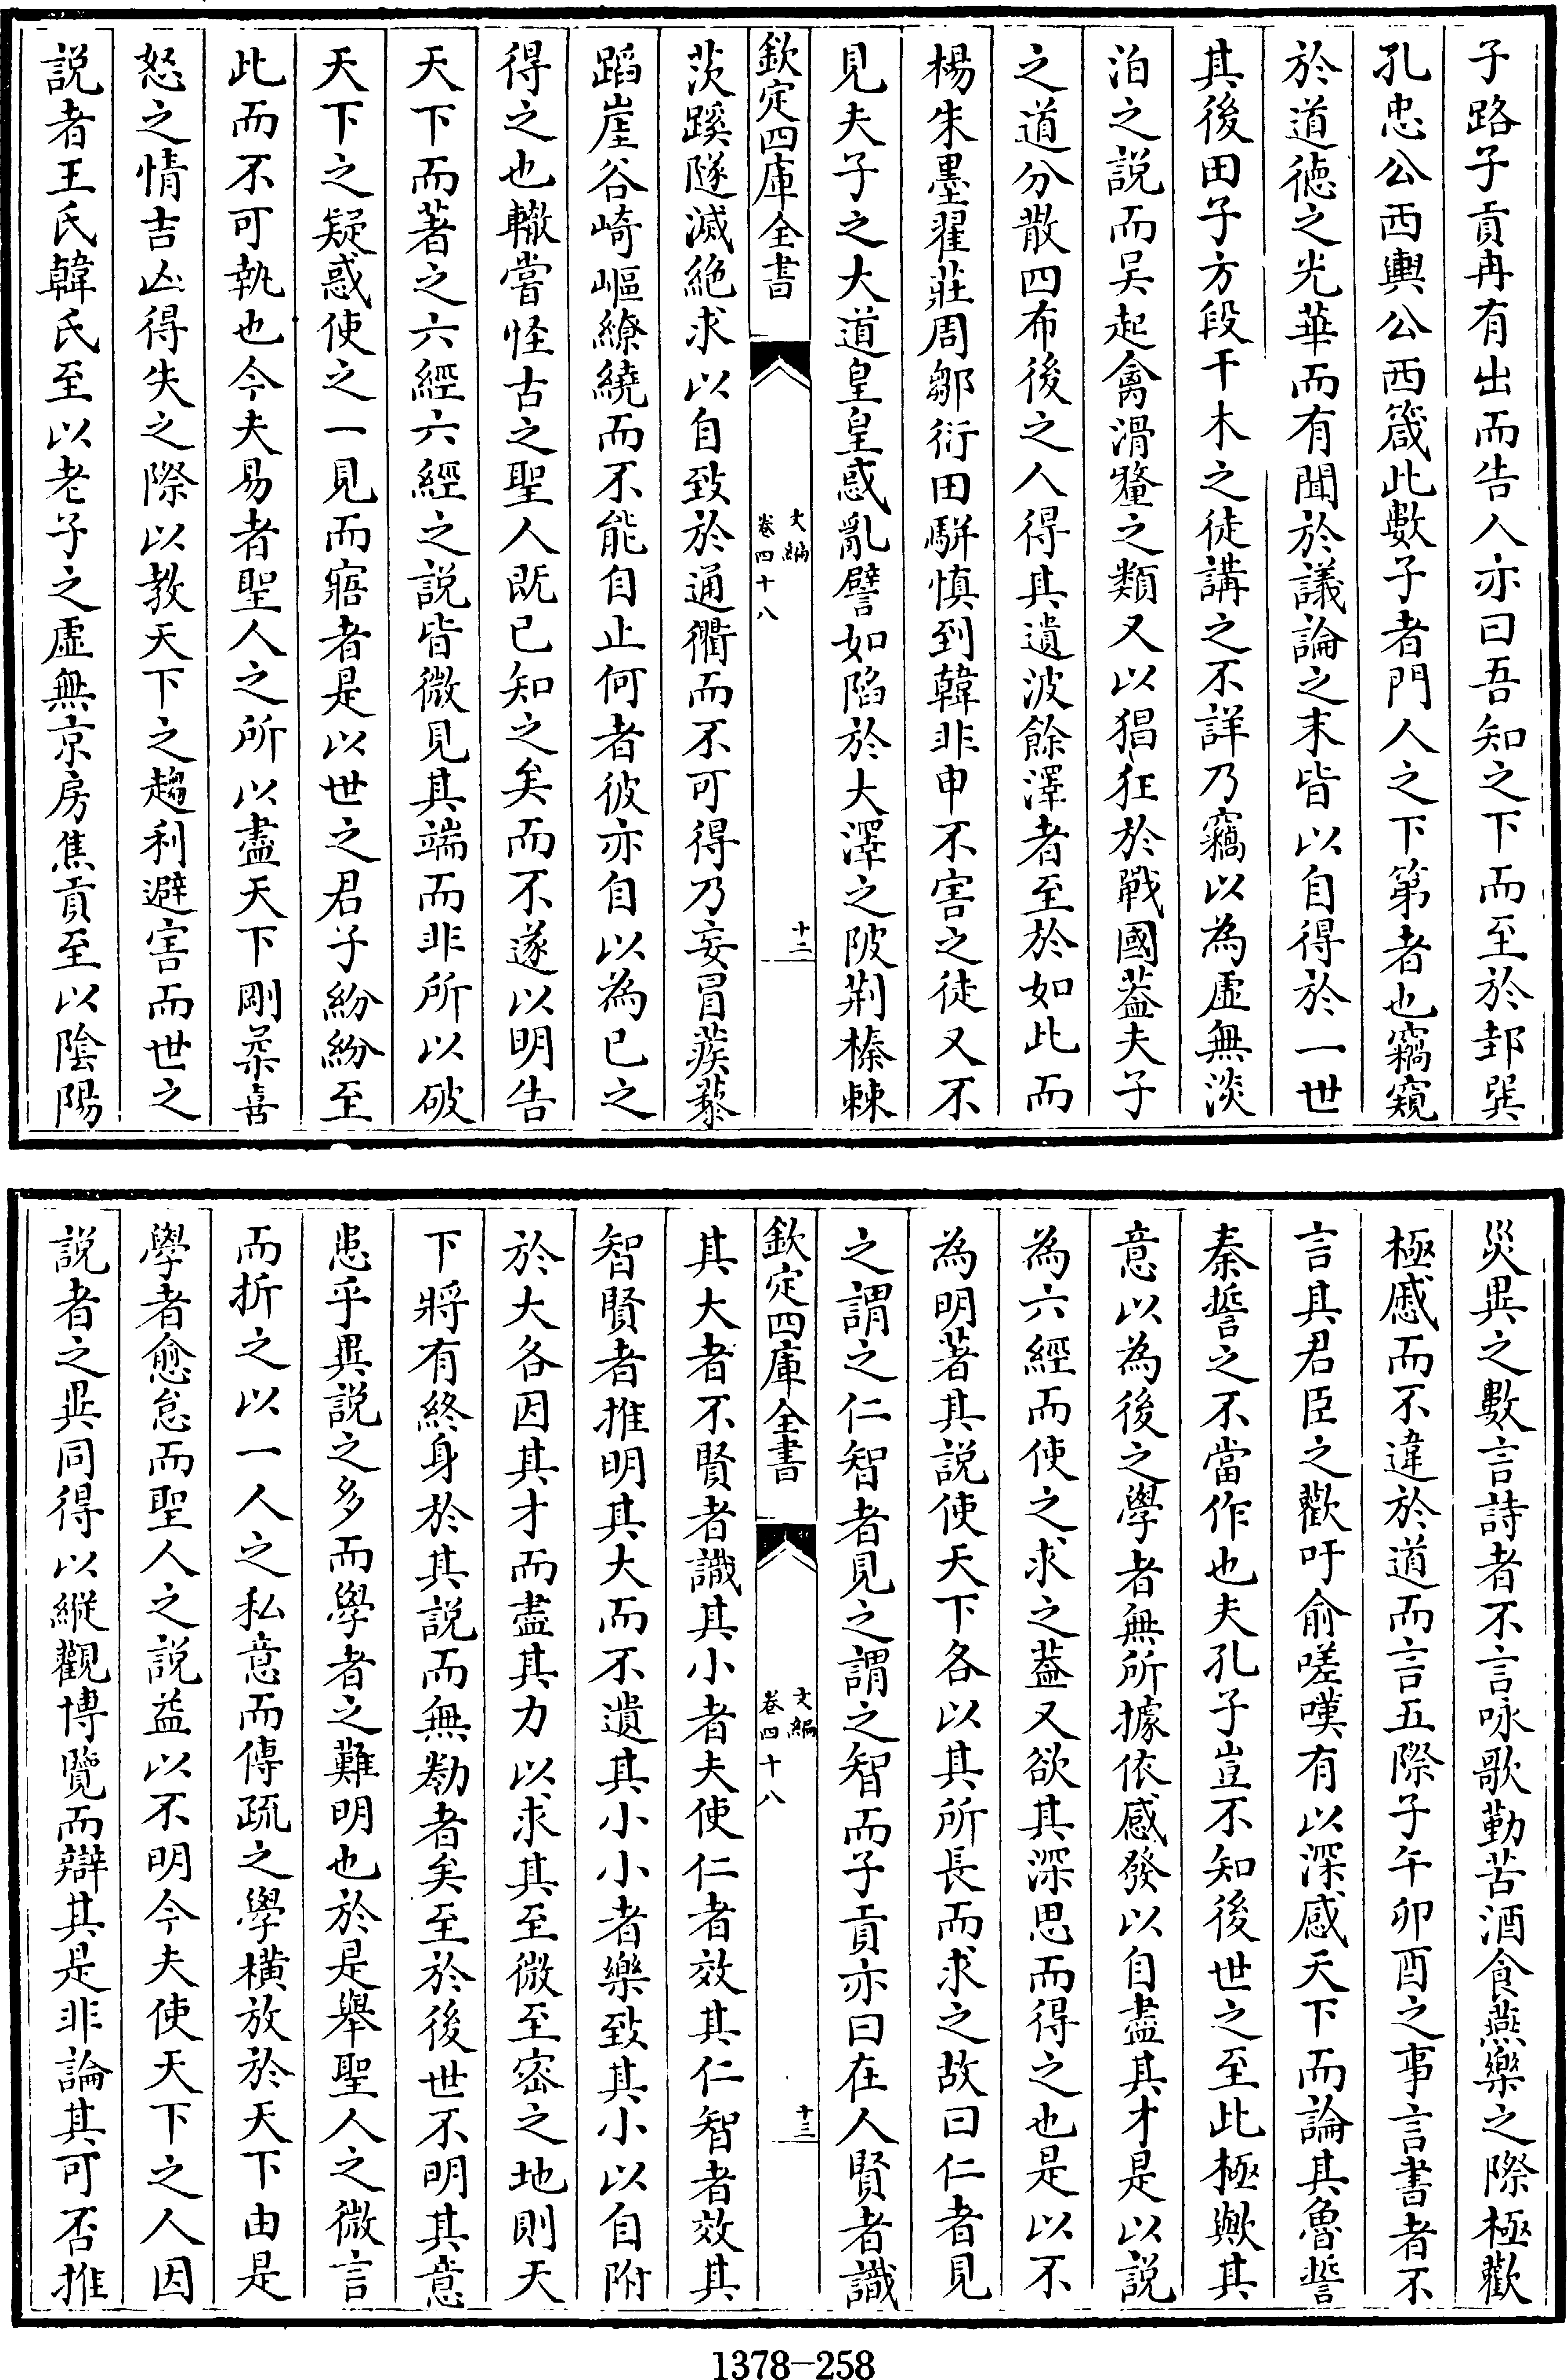 子路子貢冉有出而告人亦曰吾知之下而至於邽巽
孔忠公西輿公西箴此數子者門人之下第者也竊窺
於道徳之光華而有聞於議論之末皆以自得於一世
其後田子方段干木之徒講之不詳乃竊以為虛無淡
泊之說而吴起禽滑釐之類又以猖狂於戰國葢夫子
之道分散四布後之人得其遺波餘澤者至於如此而
楊朱墨翟莊周鄒衍田駢慎到韓非申不害之徒又不
見夫子之大道皇皇惑亂譬如陷於大澤之陂荆榛棘
欽定四庫全書
文編
卷四十八
十二
茨蹊隧滅絶求以自致於通衢而不可得乃妄冒蒺藜
蹈崖谷崎嶇繚繞而不能自止何者彼亦自以為已之
得之也轍嘗怪古之聖人既已知之矣而不遂以明告
天下而著之六經六經之說皆微見其端而非所以破
天下之疑惑使之一見而寤者是以世之君子紛紛至
此而不可執也今夫易者聖人之所以盡天下剛柔喜
怒之情吉凶得失之際以教天下之趨利避害而世之
說者王氏韓氏至以老子之虛無京房焦貢至以陰陽
災異之數言詩者不言咏歌勤苦酒食燕樂之際極歡
極慼而不違於道而言五際子午卯酉之事言書者不
言其君臣之歡吁俞嗟嘆有以深感天下而論其魯誓
秦誓之不當作也夫孔子豈不知後世之至此極歟其
意以為後之學者無所據依感發以自盡其才是以說
為六經而使之求之葢又欲其深思而得之也是以不
為明著其說使天下各以其所長而求之故曰仁者見
之謂之仁智者見之謂之智而子貢亦曰在人賢者識
欽定四庫全書
文編
卷四十八
十三
其大者不賢者識其小者夫使仁者效其仁智者效其
智賢者推明其大而不遺其小小者樂致其小以自附
於大各因其才而盡其力以求其至微至宻之地則天
下將有終身於其說而無勌者矣至於後世不明其意
患乎異說之多而學者之難明也於是舉聖人之微言
而折之以一人之私意而傳疏之學横放於天下由是
學者愈怠而聖人之說益以不明今夫使天下之人因
說者之異同得以縱觀博覽而辯其是非論其可否推
1378-258